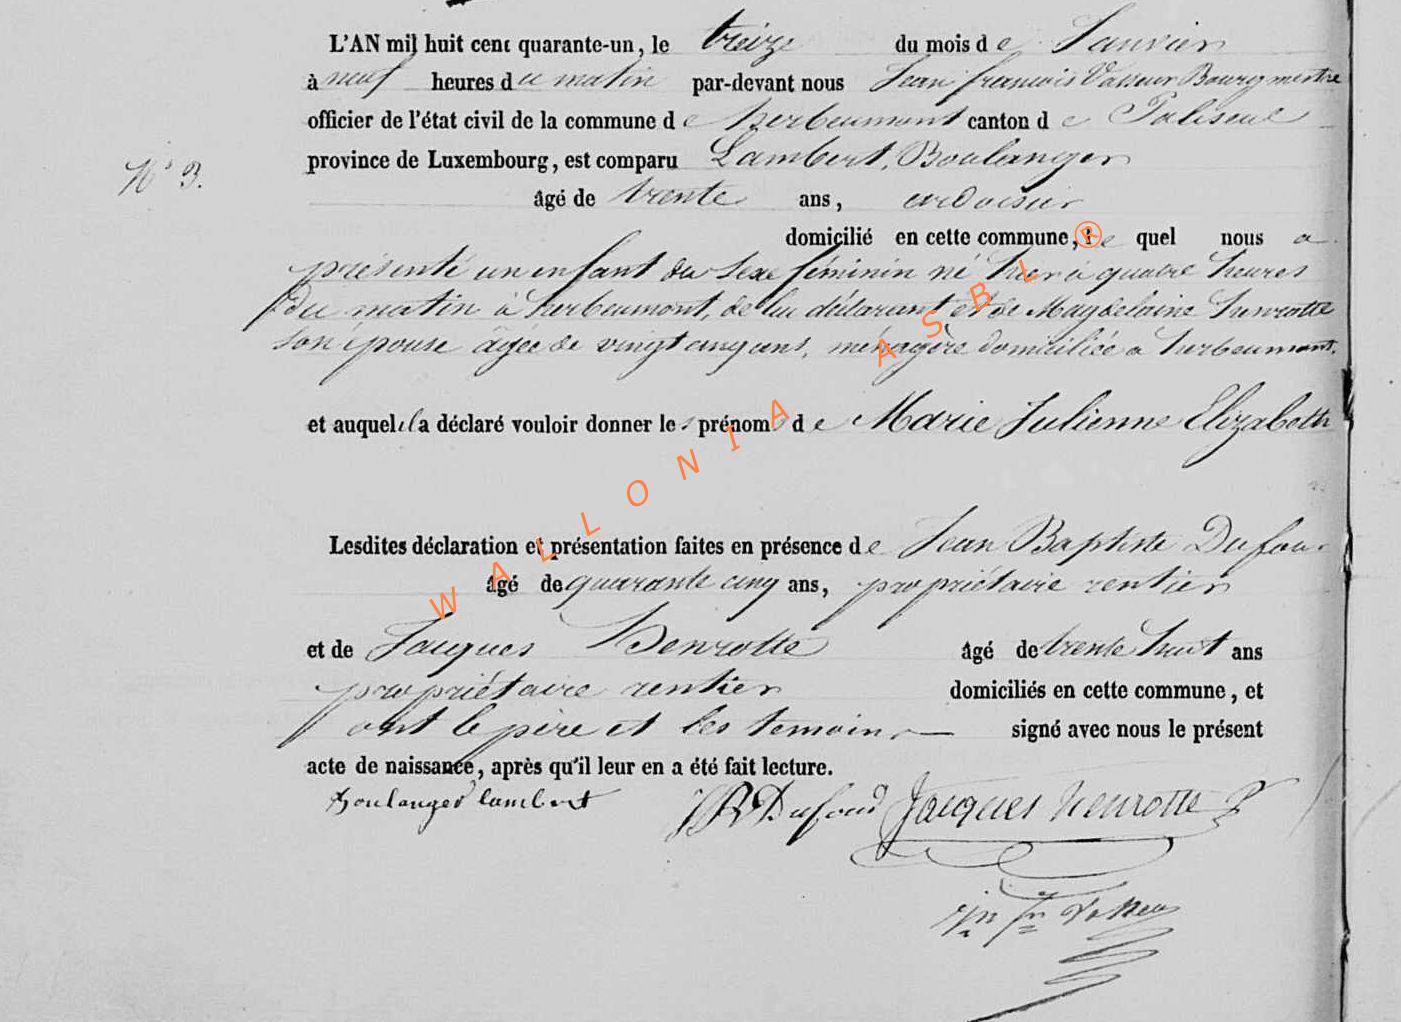 L'AN mil huit cent quarante-un, le treize du mois de Janvier
à neuf heures du matin par-devant nous Jean francois Vasseur Bourgmestre
officier de l'état civil de la commune de herbeumont canton de Paliseul
province de Luxembourg, est comparu Lambert Boulanger
N° 3.
âgé de trente ans, ardoisier
domicilié en cette commune, le quel nous a
présenté un enfant du sexe féminin né hier à quatre heures
Du matin à herbeumont, de lui déclarant et de Magdelaine henrotte
son épouse âgée de vingt cinq ans, ménagère domiciliée à herbeumont.
et auquel il a déclaré vouloir donner les prénoms de Marie Julienne Elizabeth
Lesdites déclaration et présentation faites en présence de Jean Baptiste Dufour
âgé de quarante cinq ans, propriétaire rentier
et de Jacques Henrotte âgé de trente huit ans
propriétaire rentier domiciliés en cette commune, et
ont le père et les temoins signé avec nous le présent
acte de naissance, après qu'il leur en a été fait lecture.
Boulanger lambert JB Dufour Jacques henrotte
Jn fr Vasseur
WALLONIA ASBL ®